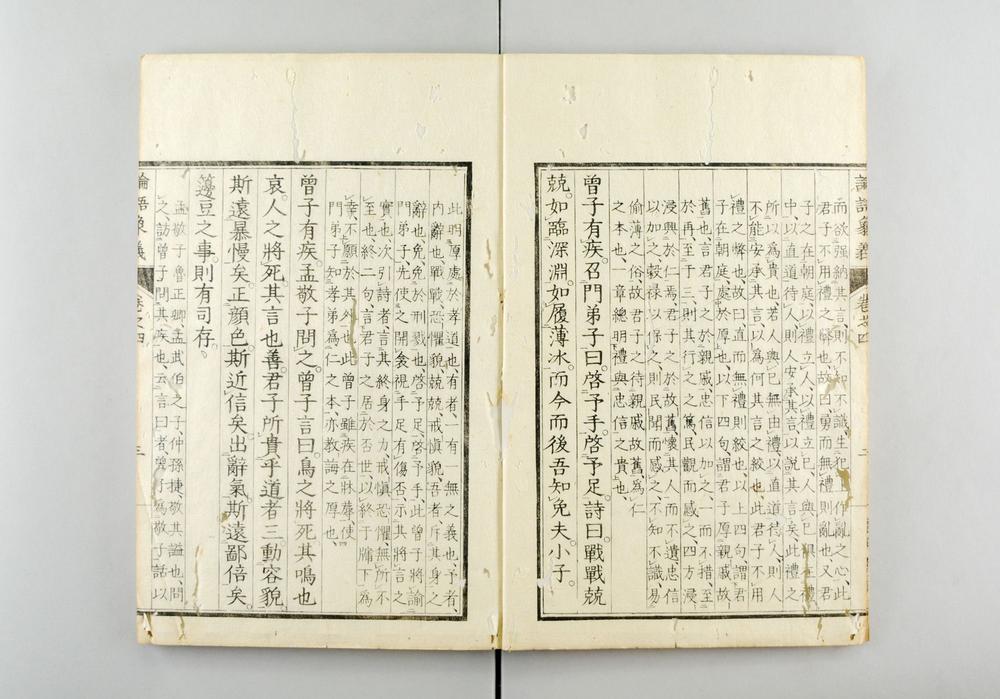 論語象義 卷之四 二
而欲强納其言、則不知不識、生犯上作亂之心、此
君子不用禮之弊也、故曰勇而無禮則亂也、又君
子之在朝庭、以禮立人、以禮立已、人與已俱立禮
中、以直道待人、則人安承其言、以説其言矣、此禮之
所以爲貴也、若人與已無由禮、以直道待人、則人
不能安承其言、以爲何其言之絞也、此君子不用
禮之弊也、故曰、直而無禮則絞也、以上四句、謂君
子在朝庭處於厚也、以下四句、謂君子厚親戚故
舊也、言君子之於親戚、忠信以加之、一而不措、至
於再至于三、則其行之之篤、民觀而感之、四方浸
浸興於仁焉、君子之於故舊、懷其人而不遺、忠信
以加之、穀祿以保之、則民聞而感之、不知不識、易
偷薄之俗、故君子之待親戚故舊爲仁
之本也、一章總明禮與忠信之貴也、
曾子有疾。召門弟子曰。啓予足。啓予手。詩曰。戰戰兢
兢。如臨深淵。如履薄冰。而今而後吾知免夫。小子。
此明厚處於孝道也、有者、一有一無之義也、予者、
内辭也、戰戰、恐懼貌、兢兢、戒愼貌、吾者、斥其身之
辭也、免、免於刑戮也、啓予足、啓予手、此曾子將諭
門弟子、先使之開衾視手足有傷否、示其將言之
實也、次引詩者、言其終身之力、戒愼恐懼、無所不
至也、終二句、言君子之居於否世、以終于牖下爲
幸、不願於其外也、此曾子雖疾在牀蓐、使
門弟子知孝弟爲仁之本、亦教誨之厚也、
曾子有疾。孟敬子問之。曾子言曰。鳥之將死。其鳴也
哀。人之將死。其言也善。君子所貴乎道者三。動容貌
斯遠暴慢矣。正顔色斯近信矣。出辭氣。斯遠鄙倍矣。
籩豆之事。則有司存。
孟敬子、魯正卿、孟武伯之子、仲孫捷、敬其謚也、問
之、訪曾子問其疾也、云言曰者、曾子爲敬子話、以
論語象義 卷之四 三